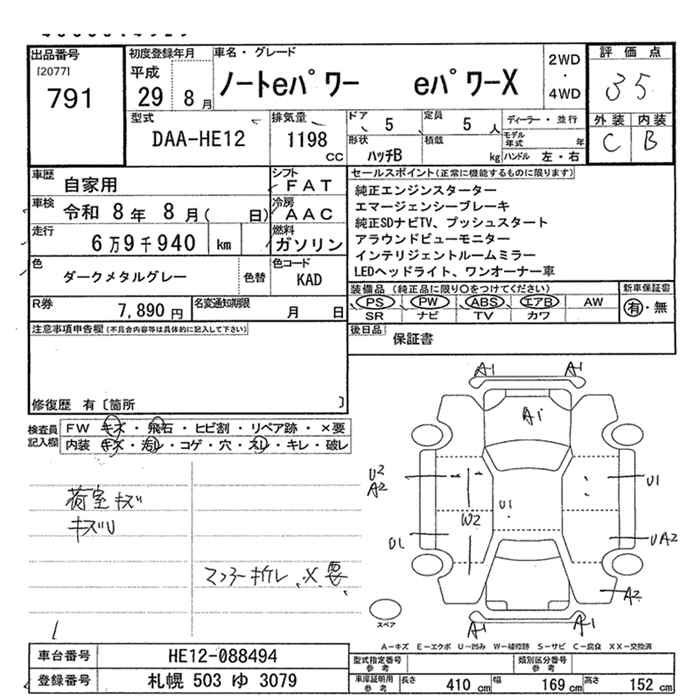 出品番号
[2077]
791
初度登録年月
平成
29 8月
車名・グレード
ノートeパワー eパワーX
2WD
・
4WD
評価点
3.5
外装 内装
C B
型式
DAA-HE12
排気量
1198
CC
ドア 5
定員 5人
形状 ハッチB
積載 kg
ディーラー・並行
モデル年式 年
ハンドル 左・右
車歴 自家用
シフト FAT
車検 令和 8年 8月( 日)
冷房 AAC
走行 6万9千940 km
燃料 ガソリン
色 ダークメタルグレー 色替
色コード KAD
R券 7,890円
名変通知期限 月 日
セールスポイント(正常に機能するものに限ります)
純正エンジンスターター
エマージェンシーブレーキ
純正SDナビTV、プッシュスタート
アラウンドビューモニター
インテリジェントルームミラー
LEDヘッドライト、ワンオーナー車
装備品 (純正品に限り○をつけてください)
PS PW ABS エアB AW
SR ナビ TV カワ
新車保証書
有・無
後日品 保証書
注意事項申告欄(不具合内容等は具体的に記入して下さい)
修復歴 有〔箇所 〕
検査員記入欄
FW キズ・飛石・ヒビ割・リペア跡・×要
内装 キズ・汚レ・コゲ・穴・スレ・キレ・破レ
荷室キズ
キズU
マフラーキレ、×要
A1 A1
A1
U2
A2
U1
U1
W2
U1
UA2
A2
A1 A1
スペア
A-キズ E-エクボ U-凹み W-補修跡 S-サビ C-腐食 XX-交換済
車台番号 HE12-088494
登録番号 札幌 503 ゆ 3079
型式指定番号 参考
類別区分番号 参考
車庫証明用 参考
長さ 410 cm
幅 169 cm
高さ 152 cm